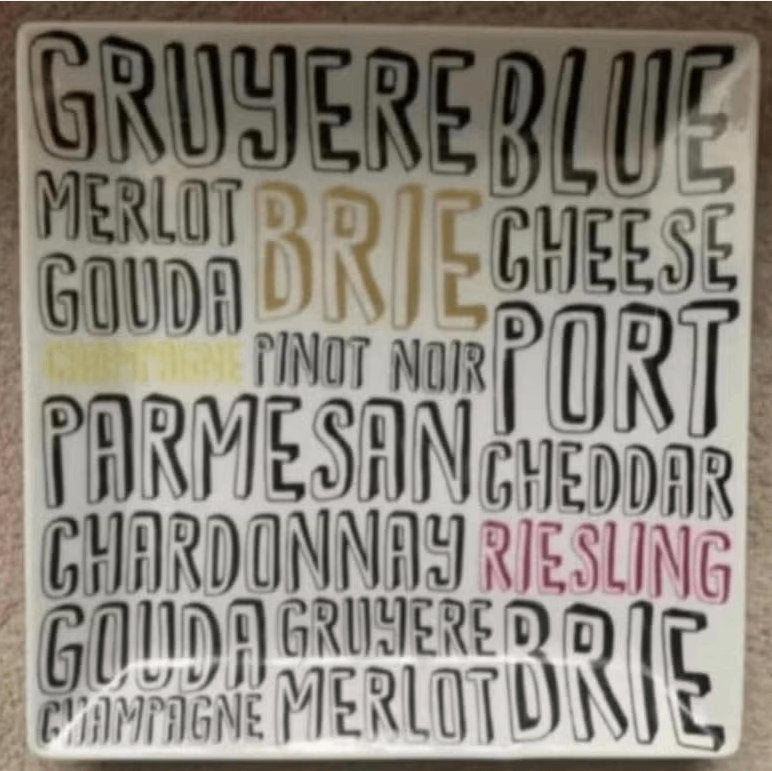 GRUYERE BLUE
MERLOT BRIE CHEESE
GOUDA
CHAMPAGNE PINOT NOIR PORT
PARMESAN CHEDDAR
CHARDONNAY RIESLING
GOUDA GRUYERE BRIE
CHAMPAGNE MERLOT